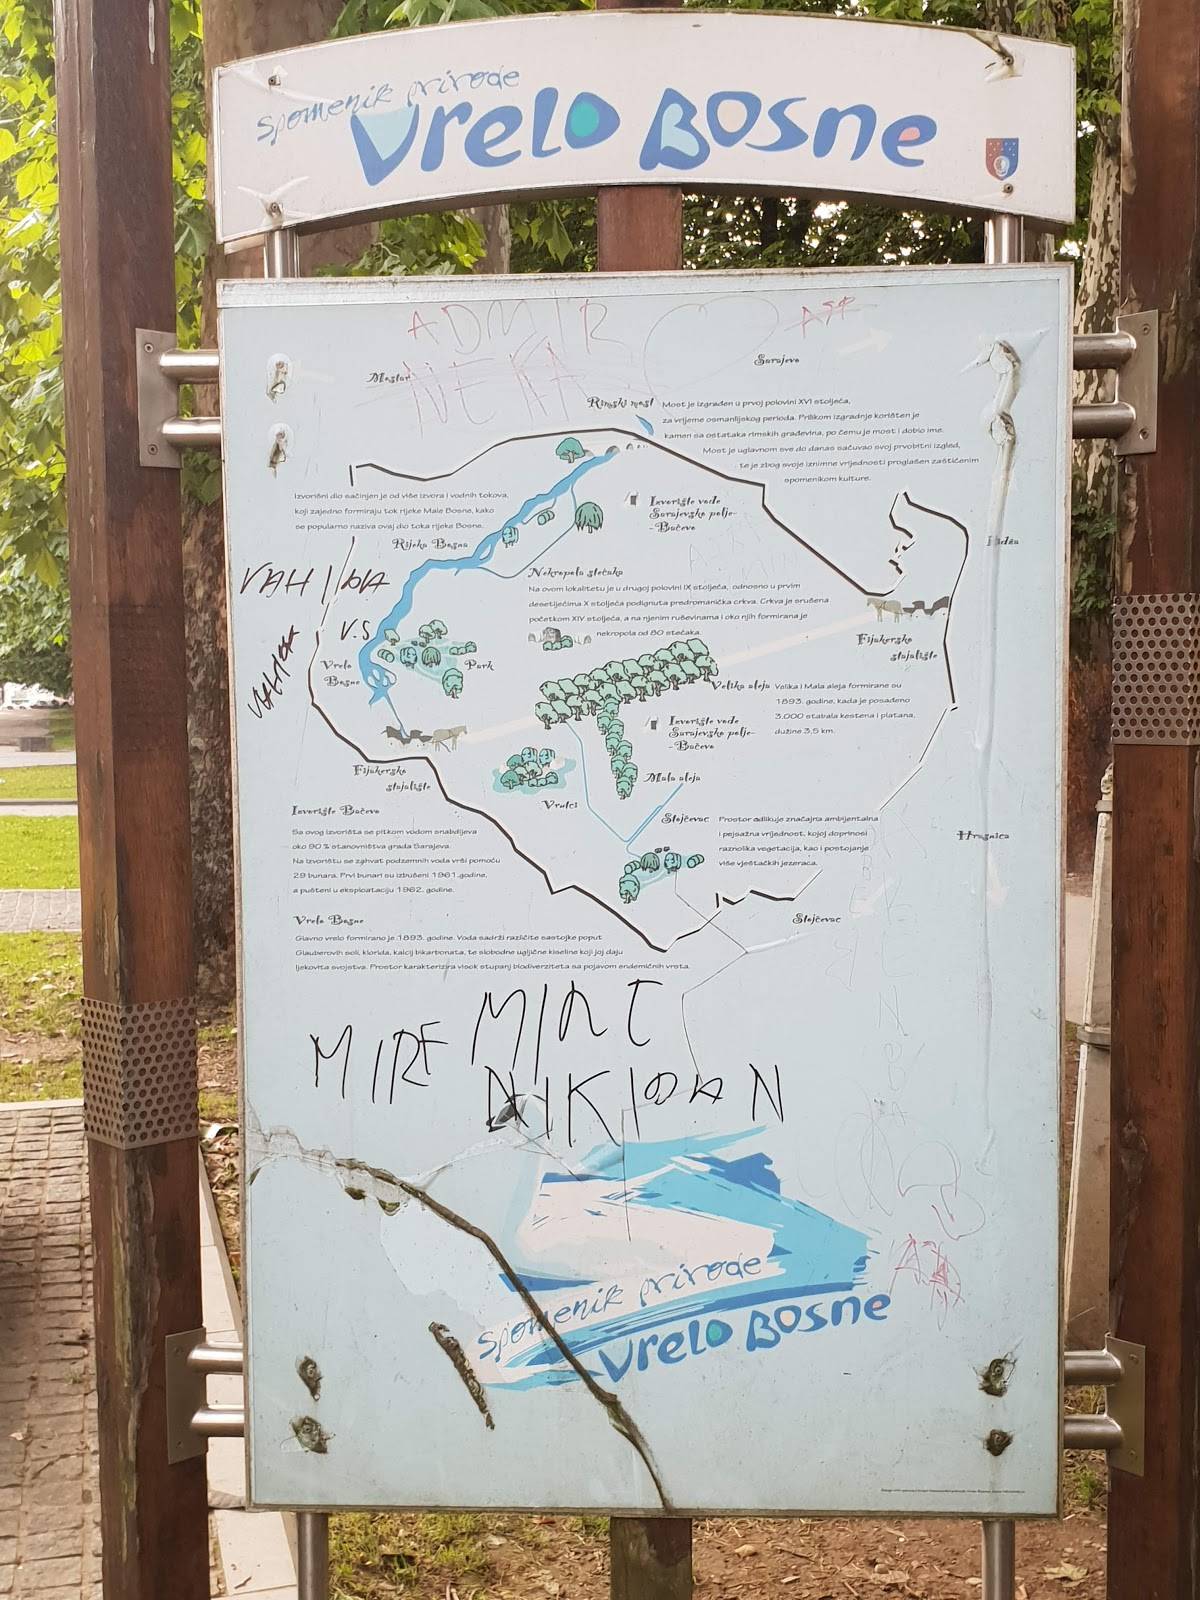 Spomenik prirode
Vrelo Bosne
ADMIR
NEKA
Mostar
Sarajevo
Rimski most
Most je izgrađen u prvoj polovini XVI stoljeća,
za vrijeme osmanlijskog perioda. Prilikom izgradnje korišten je
kamen sa ostataka rimskih građevina, po čemu je most i dobio ime.
Most je uglavnom sve do danas sačuvao svoj prvobitni izgled,
te je zbog svoje iznimne vrijednosti proglašen zaštićenim
spomenikom kulture.
Izvorišni dio sačinjen je od više izvora i vodnih tokova,
koji zajedno formiraju tok rijeke Male Bosne, kako
se popularno naziva ovaj dio toka rijeke Bosne.
Rijeka Bosna
Izvorište vode
Sarajevsko polje-
-Bačevo
Nekropola stećaka
Na ovom lokalitetu je u drugoj polovini IX stoljeća, odnosno u prvim
desetljećima X stoljeća podignuta predromanička crkva. Crkva je srušena
početkom XIV stoljeća, a na njenim ruševinama i oko njih formirana je
nekropola od 80 stećaka.
V.S
Vrelo
Bosne
Park
Fijakersko
stajalište
Velika aleja
Velika i Mala aleja formirane su
1893. godine, kada je posađeno
3.000 stabala kestena i platana,
dužine 3,5 km.
Izvorište vode
Sarajevsko polje-
-Bačevo
Fijakersko
stajalište
Mala aleja
Vrutci
Stojčevac
Prostor odlikuje značajna ambijentalna
i pejsažna vrijednost, kojoj doprinosi
raznolika vegetacija, kao i postojanje
više vještačkih jezeraca.
Hrasnica
Izvorište Bačevo
Sa ovog izvorišta se pitkom vodom snabdijeva
oko 90 % stanovništva grada Sarajeva.
Na izvorištu se zahvat podzemnih voda vrši pomoću
29 bunara. Prvi bunari su izbušeni 1961.godine,
a pušteni u eksploataciju 1962. godine.
Stojčevac
Vrelo Bosne
Glavno vrelo formirano je 1893. godine. Voda sadrži različite sastojke poput
Glauberovih soli, klorida, kalcij bikarbonata, te slobodne ugljične kiseline koji joj daju
ljekovita svojstva. Prostor karakterizira visok stupanj biodiverziteta sa pojavom endemičnih vrsta.
Spomenik prirode
Vrelo Bosne